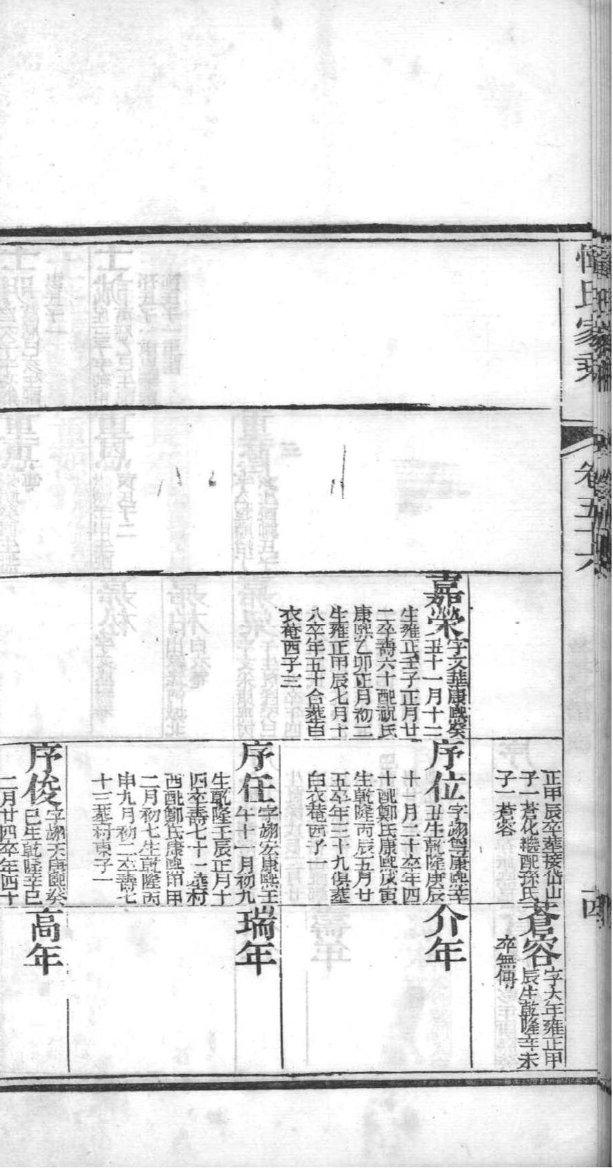 惲氏家乘
卷五十六
四
嘉榮
字文華康熙癸
丑十一月十二
生雍正壬子正月廿
二卒壽六十配祝氏
康熙乙卯正月初二
生雍正甲辰七月十
八卒年五十合葬白
衣菴西子三
正甲辰卒葬接岱山
子一蒼化繼配孫氏
子一蒼容
蒼容
字大年雍正甲
辰生乾隆辛未
卒無傳
序位
字翊尊康熙辛
丑生乾隆庚辰
十二月二十卒年四
十配鄭氏康熙戊寅
生乾隆丙辰五月廿
五卒年三十九俱葬
白衣菴西子一
介年
序任
字翊宏康熙壬
午十一月初九
生乾隆壬辰正月十
四卒壽七十一葬村
西配鄭氏康熙甲申
二月初七生乾隆丙
申九月初二卒壽七
十三葬村東子一
瑞年
序俊
字翊天康熙癸
巳生乾隆辛巳
二月廿四卒年四十
高年